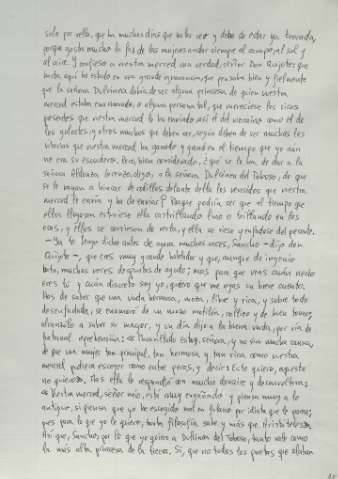 solo por vella, que ha muchos días que no la veo y debe de estar ya trocada,
porque gasta mucho la faz de las mujeres andar siempre al campo, al sol y
al aire. Y confieso a vuestra merced una verdad, señor don Quijote: que
hasta aquí he estado en una grande ignorancia, que pensaba bien y fielmente
que la señora Dulcinea debía de ser alguna princesa de quien vuestra
merced estaba enamorado, o alguna persona tal, que mereciese los ricos
presentes que vuestra merced le ha enviado, así el del vizcaíno como el de
los galeotes, y otros muchos que deben ser, según deben de ser muchas las
vitorias que vuestra merced ha ganado y ganó en el tiempo que yo aún
no era su escudero. Pero, bien considerado, ¿qué se le ha de dar a la
señora Aldonza Lorenzo, digo, a la señora Dulcinea del Toboso, de que
se le vayan a hincar de rodillas delante della los vencidos que vuestra
merced le envía y ha de enviar? Porque podría ser que al tiempo que
ellos llegasen estuviese ella rastrillando lino o trillando en las
eras, y ellos se corriesen de verla, y ella se riese y enfadase del presente.
– Ya te tengo dicho antes de agora muchas veces, Sancho – dijo don
Quijote –, que eres muy grande hablador y que, aunque de ingenio
boto, muchas veces despuntas de agudo; mas para que veas cuán necio
eres tú y cuán discreto soy yo, quiero que me oyas un breve cuento.
Has de saber que una viuda hermosa, moza, libre y rica, y sobre todo
desenfadada, se enamoró de un mozo motilón, rollizo y de buen tomo;
alcanzólo a saber su mayor, y un día dijo a la buena viuda, por vía de
fraternal reprehensión: «Maravillado estoy, señora, y no sin mucha causa,
de que una mujer tan principal, tan hermosa y tan rica como vuestra
merced
pudiera escoger como entre peras, y decir: Este quiero, aqueste
no quiero». Mas ella le respondió con mucho donaire y desenvoltura:
«Vuestra merced, señor mío, está muy engañado y piensa muy a lo
antiguo, si piensa que yo he escogido mal en fulano por idiota que le parece;
pues para lo que yo le quiero, tanta filosofía sabe y más que Aristóteles».
Así que, Sancho, por lo que yo quiero a Dulcinea del Toboso, tanto vale como
la más alta princesa de la tierra. Sí, que no todos los poetas que alaban